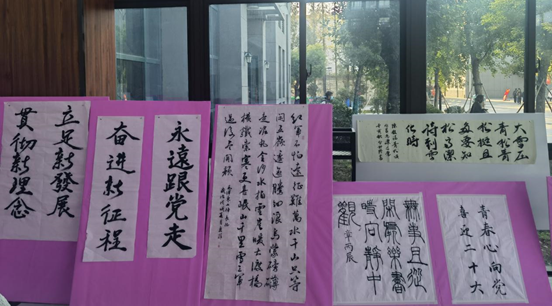 立足新發展
貫彻新理念
永遠跟党走
奋進新征程
紅軍不怕遠征難萬水千山只等
閑五嶺逶迤騰細浪烏蒙磅礴
走泥丸金沙水拍雲崖暖大渡橋
橫鐵索寒更喜岷山千里雪三軍
過後盡開顏
大雪壓
青松青
松挺且
直要知
松高潔
待到雪
化時
無事且從
閑處樂書
向靜中
觀
青春心向党
喜迎二十大